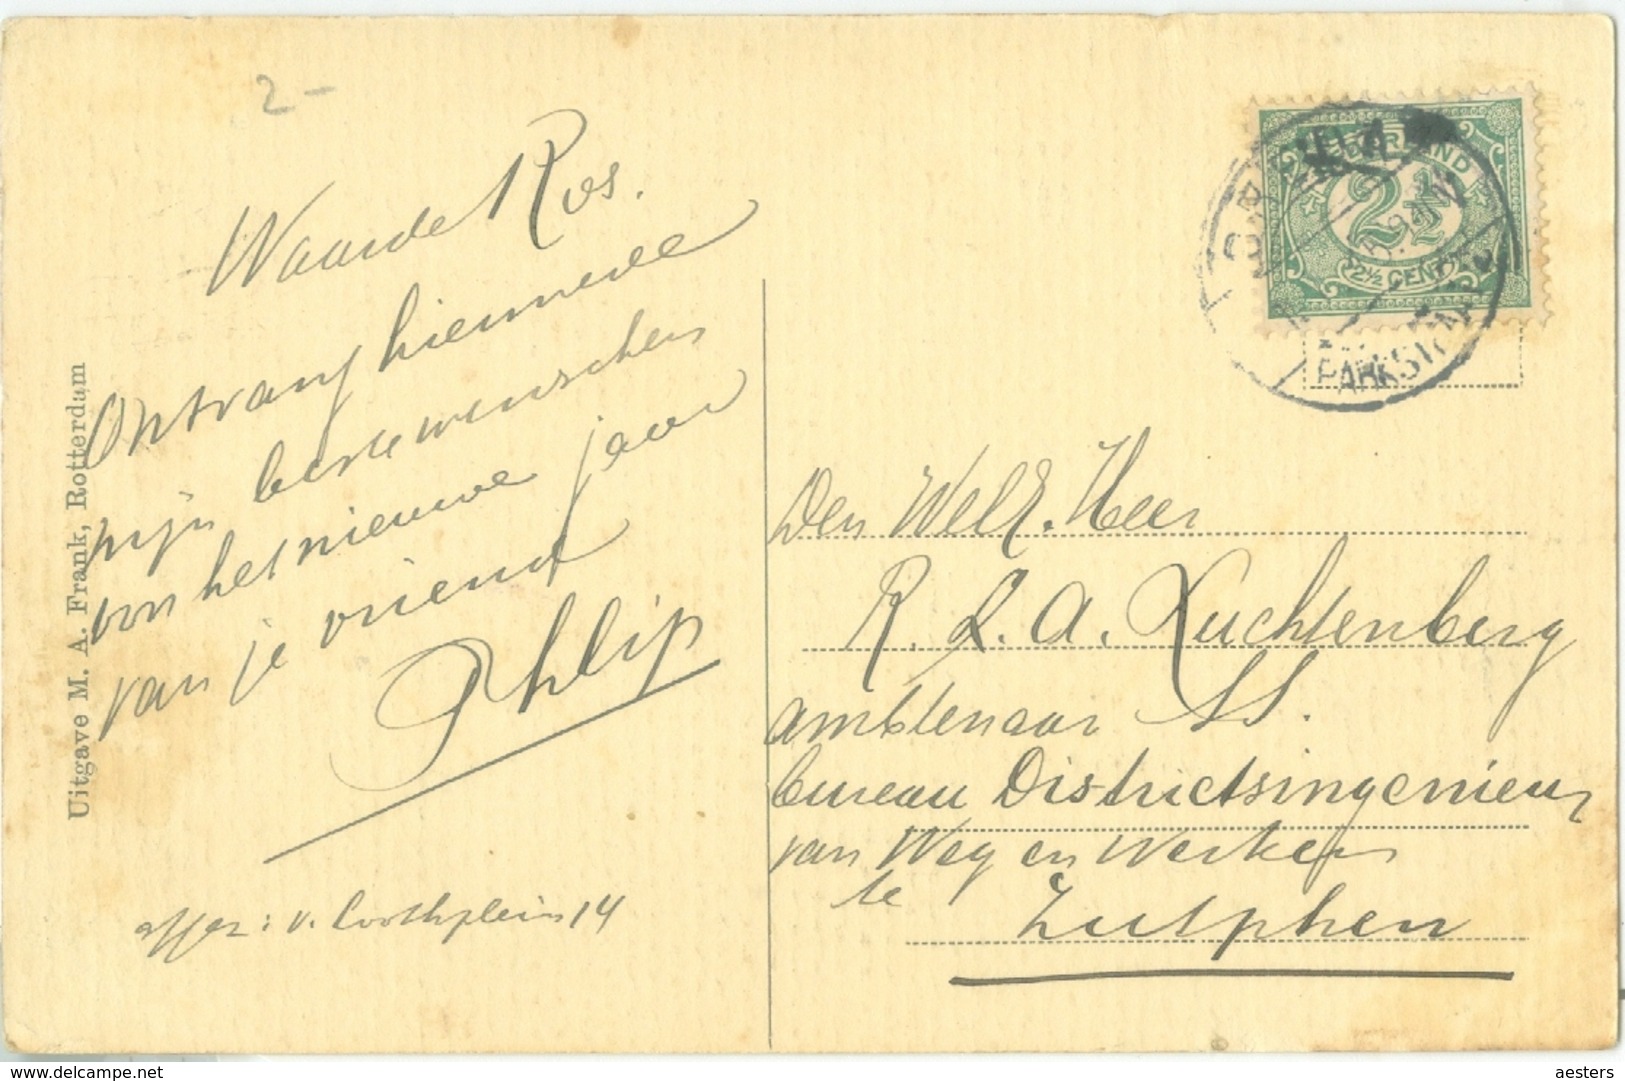 2-
Waarde Ros.
Ontvang hiermede
mijn beste wenschen
voor het nieuwe jaar
van je vriend
Phlip
afzez: v. Coothplein 14
Uitgave M. A. Frank, Rotterdam
NEDERLAND
2½
2½ CENT
PARKSTR
Den WelE. Heer
R. L. A. Luchtenberg
ambtenaar SS.
bureau Districtsingenieur
van Weg en Werken
te
Zutphen
aesters
www.delcampe.net